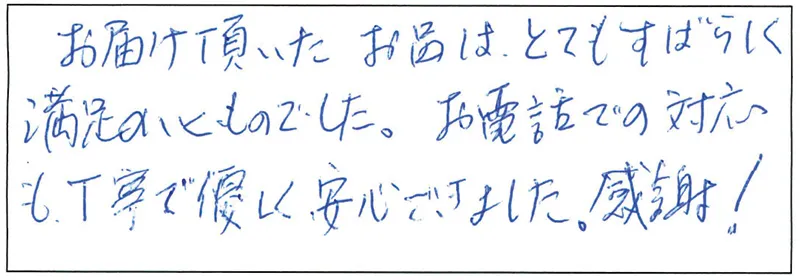 お届け頂いたお品は、とてもすばらしく
満足のいくものでした。お電話での対応
も、丁寧で優しく、安心できました。感謝！